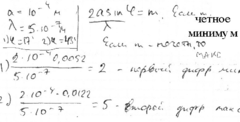 a = 10⁻⁴ м
2a sin φ / λ = m, если m - четное
минимум
λ = 5·10⁻⁷ м
если m - нечетн, то
макс
1) 2·10⁻⁴·0,0052 / 5·10⁻⁷ = 2 - первый дифр мин
2) 2·10⁻⁴·0,0122 / 5·10⁻⁷ = 5 - второй дифр макс